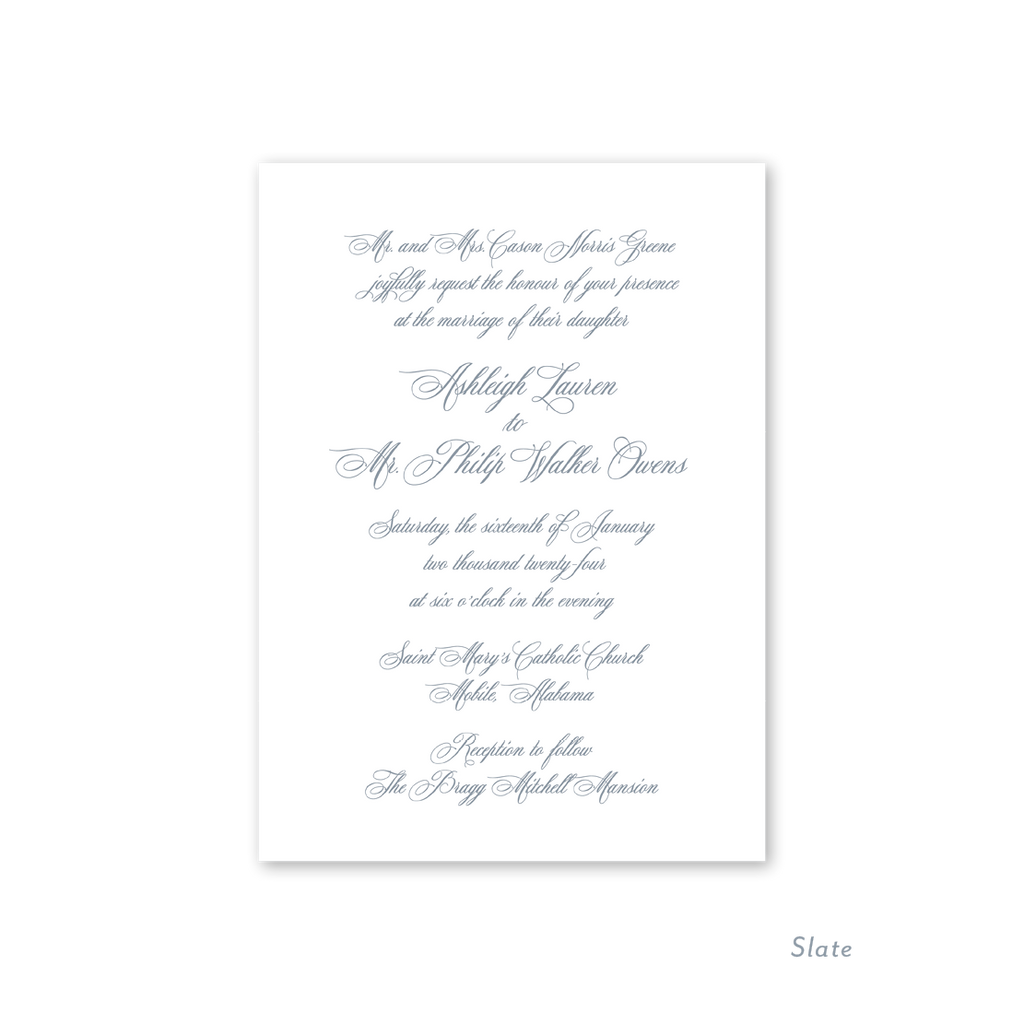 Mr. and Mrs. Cason Norris Greene
joyfully request the honour of your presence
at the marriage of their daughter
Ashleigh Lauren
to
Mr. Philip Walker Owens
Saturday, the sixteenth of January
two thousand twenty-four
at six o'clock in the evening
Saint Mary's Catholic Church
Mobile, Alabama
Reception to follow
The Bragg Mitchell Mansion
Slate